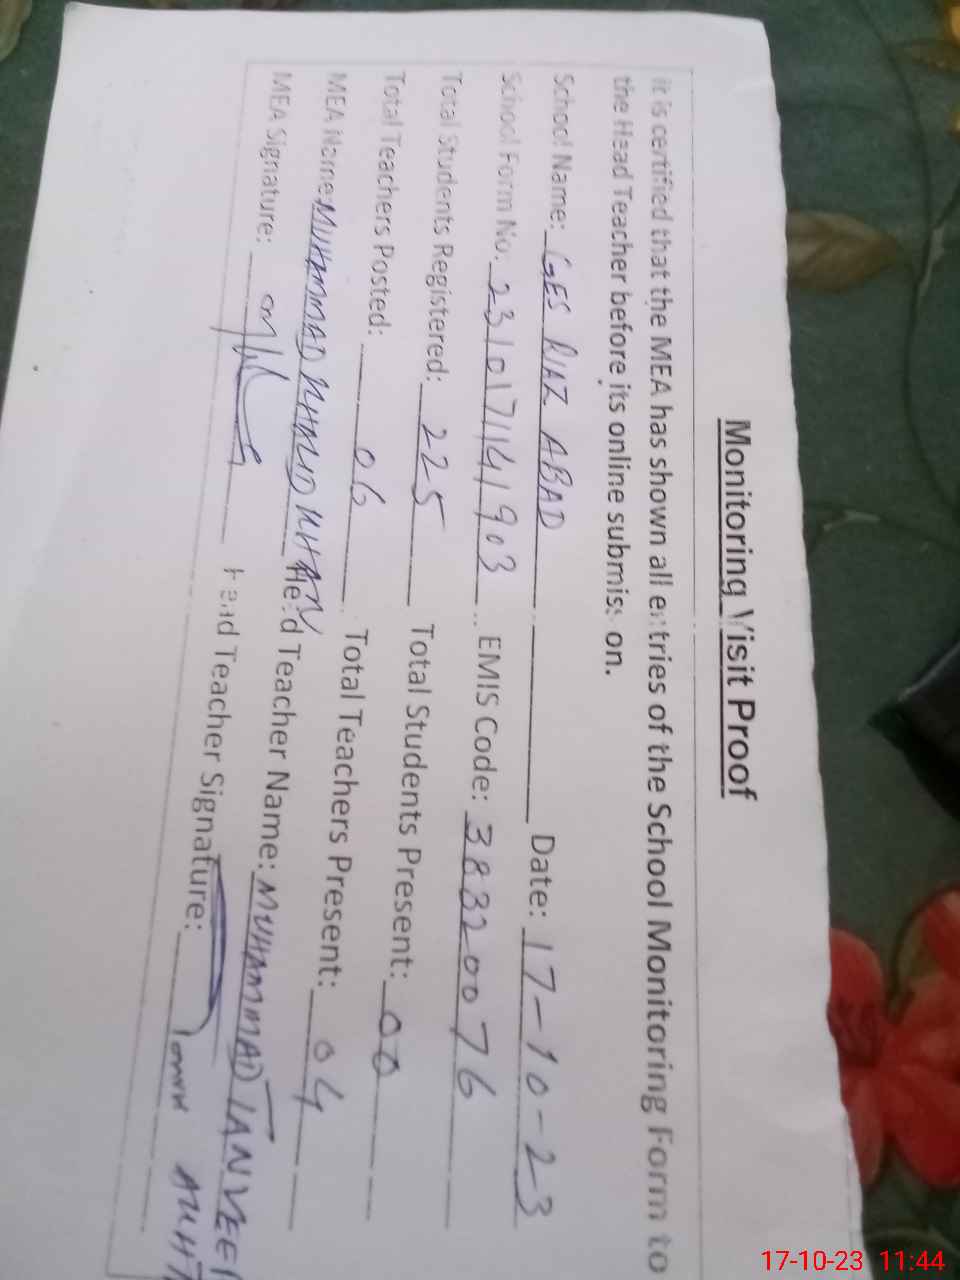 Monitoring Visit Proof
it is certified that the MEA has shown all entries of the School Monitoring Form to
the Head Teacher before its online submission.
School Name: GES RIAZ ABAD Date: 17-10-23
School Form No. 2310171141903 EMIS Code: 38320076
Total Students Registered: 225 Total Students Present: 00
Total Teachers Posted: 06 Total Teachers Present: 04
MEA Name: MUHAMMAD KHALID KHAN Head Teacher Name: MUHAMMAD TANVEER
MEA Signature: Head Teacher Signature:
17-10-23 11:44